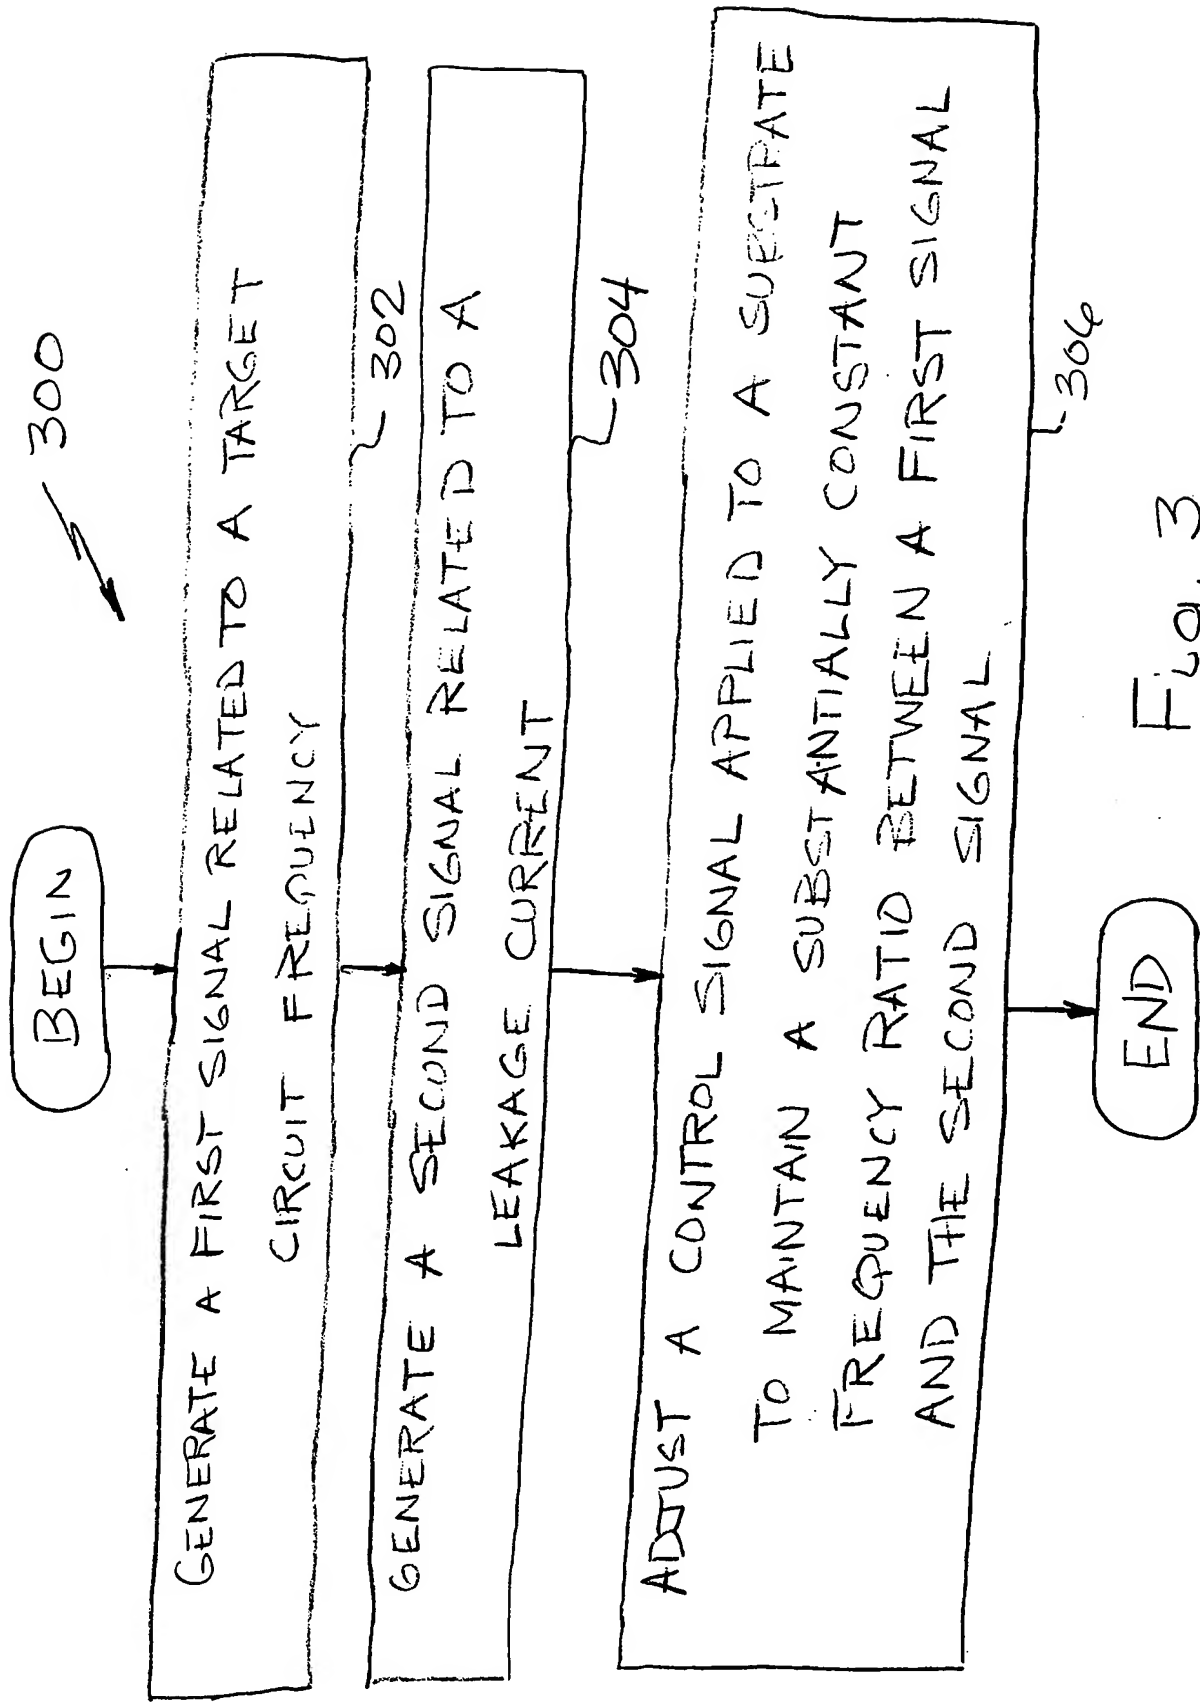 300
BEGIN
GENERATE A FIRST SIGNAL RELATED TO A TARGET
CIRCUIT FREQUENCY
302
GENERATE A SECOND SIGNAL RELATED TO A
LEAKAGE CURRENT
304
ADJUST A CONTROL SIGNAL APPLIED TO A SUBSTRATE
TO MAINTAIN A SUBSTANTIALLY CONSTANT
FREQUENCY RATIO BETWEEN A FIRST SIGNAL
AND THE SECOND SIGNAL
306
END
Fig. 3